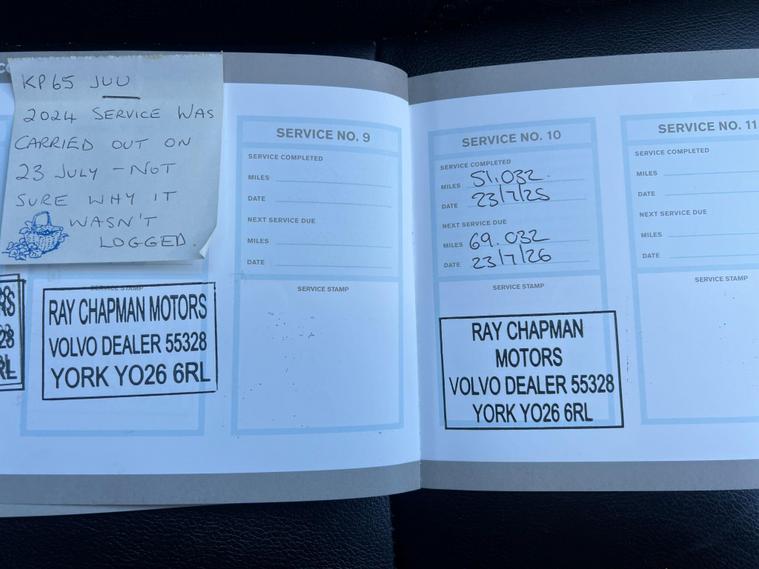 KP65 JUU
2024 SERVICE WAS
CARRIED OUT ON
23 JULY - NOT
SURE WHY IT
WASN'T
LOGGED.
SERVICE STAMP
RAY CHAPMAN MOTORS
VOLVO DEALER 55328
YORK YO26 6RL
SERVICE NO. 9
SERVICE COMPLETED
MILES
DATE
NEXT SERVICE DUE
MILES
DATE
SERVICE STAMP
SERVICE NO. 10
SERVICE COMPLETED
MILES 51.032
DATE 23/7/25
NEXT SERVICE DUE
MILES 69.032
DATE 23/7/26
SERVICE STAMP
RAY CHAPMAN
MOTORS
VOLVO DEALER 55328
YORK YO26 6RL
SERVICE NO. 11
SERVICE COMPLETED
MILES
DATE
NEXT SERVICE DUE
MILES
DATE
SERVICE STAMP